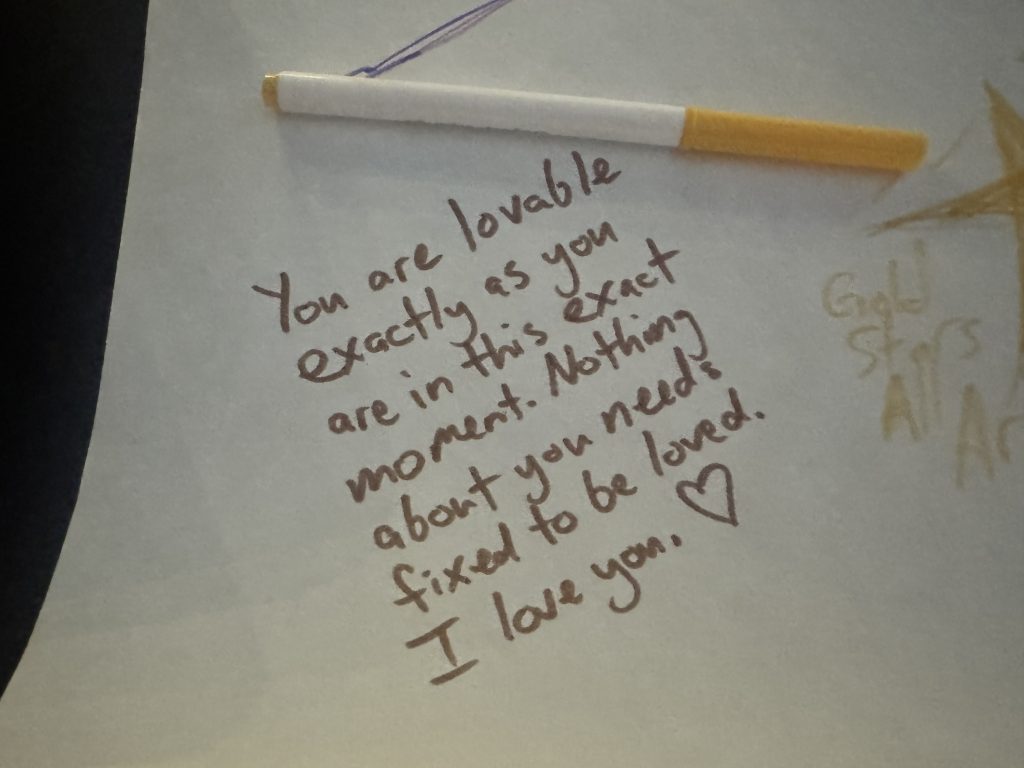 You are lovable
exactly as you
are in this exact
moment. Nothing
about you needs
fixed to be loved.
I love you. ♡
Gold
Stars
All
Ar